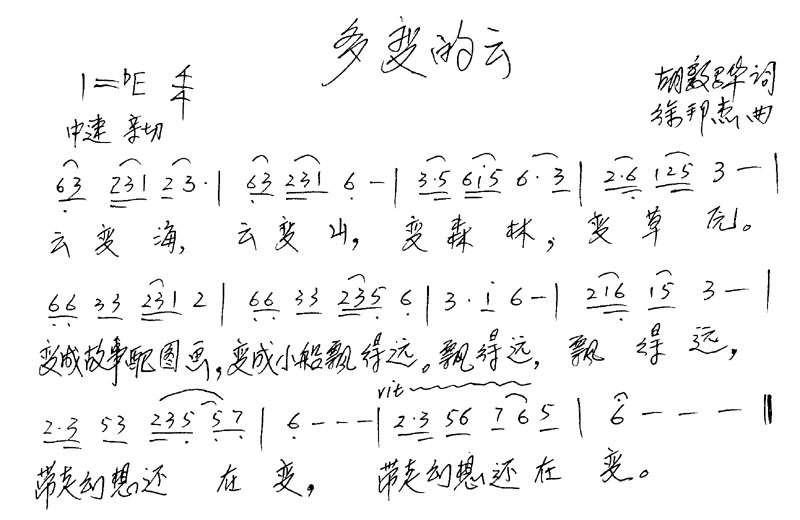 多变的云
1=♭E 4/4
胡敦骅词
徐邦杰曲
中速 亲切
63 231 23· | 63 231 6 - | 3·5 6i5 6·3 | 2·6 125 3 - |
云变海,云变山,变森林,变草原。
66 33 231 2 | 66 33 235 6 | 3·i 6 - | 216 15 3 - |
变成故事配图画,变成小船飘得远。飘得远,飘得远,
rit
2·3 53 235 57 | 6 - - - | 2·3 56 76 5 | 6 - - - ‖
带走幻想还在变,带走幻想还在变。